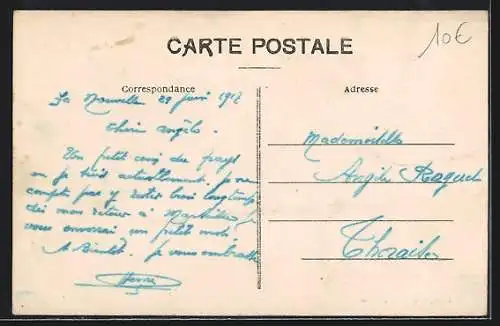 10€
CARTE POSTALE
Correspondance
Adresse
La Nouvelle 29 juin 1917
Chère Angèle.
Un petit coin du pays
ou je suis actuellement. je ne
compte pas y rester bien longtemps
dès mon retour à
vous enverrai un petit mot
A Bientôt. je vous embrasse
Mademoiselle
Angèle